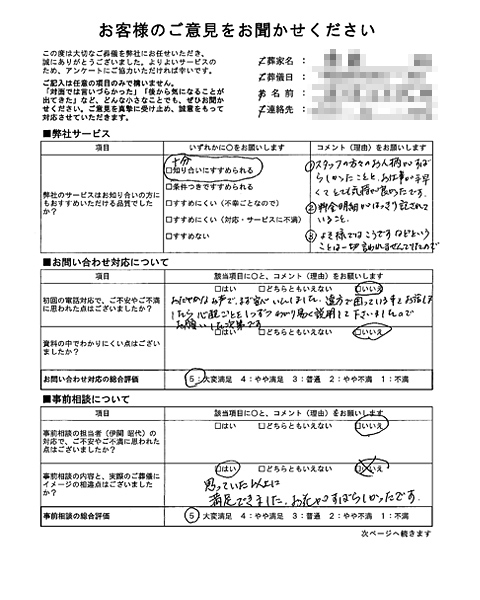 お客様のご意見をお聞かせください
この度は大切なご葬儀を弊社にお任せいただき、
誠にありがとうございました。よりよいサービスの
ため、アンケートにご協力いただければ幸いです。
ご記入は任意の項目のみで構いません。
「対面では言いづらかった」「後から気になることが
出てきた」など、どんな小さなことでも、ぜひお聞か
せください。ご意見を真摯に受け止め、誠意をもって
対応させていただきます。
葬家名：
葬儀日：
お名前：
ご連絡先：
■弊社サービス
項目 いずれかに○をお願いします コメント（理由）をお願いします
弊社のサービスはお知り合いの方に
もおすすめいただける品質でした
か？
十分
□知り合いにすすめられる
□条件つきですすめられる
□すすめにくい（不幸ごとなので）
□すすめにくい（対応・サービスに不満）
□すすめない
①スタッフの方々のお人柄がすば
らしかったことと、お仕事が手早
くてとても気持が良かったです。
②料金明細がはっきり記されて
いること。
③よそ様ではこうですなどという
ことは一切言われませんでしたので
■お問い合わせ対応について
項目 該当項目に○と、コメント（理由）をお願いします
初回の電話対応で、ご不安やご不満
に思われた点はございましたか？
□はい □どちらともいえない □いいえ
おだやかなお声で、まず安心いたしました。遠方で困っている事をお話し
しましたら
お願いした次第です
資料の中でわかりにくい点はござい
ましたか？
□はい □どちらともいえない □いいえ
お問い合わせ対応の総合評価 5：大変満足 4：やや満足 3：普通 2：やや不満 1：不満
■事前相談について
項目 該当項目に○と、コメント（理由）をお願いします
事前相談の担当者（伊関 昭代）の
対応で、ご不安やご不満に思われた
点はございましたか？
□はい □どちらともいえない □いいえ
事前相談の内容と、実際のご葬儀に
イメージの相違点はございました
か？
□はい □どちらともいえない □いいえ
思っていた以上に
満足できました。お花がすばらしかったです。
事前相談の総合評価 5：大変満足 4：やや満足 3：普通 2：やや不満 1：不満
次ページへ続きます